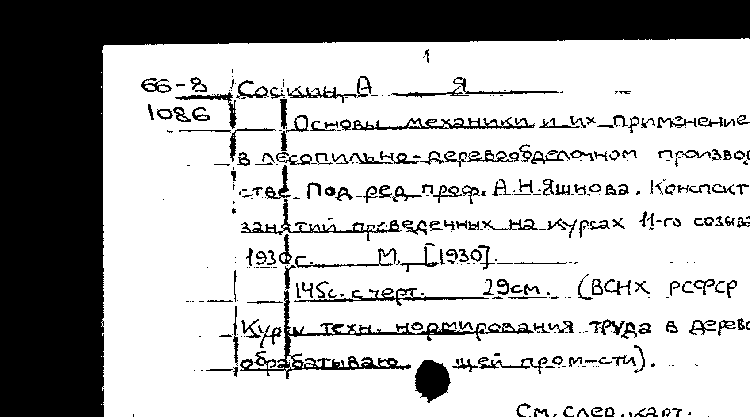 1
66-8 Соскин, А Я
1086
Основы механики и их применение
в лесопильно-деревообделочном произво
стве. Под ред. проф. А.Н.Яшнова. Конспект
занятий проведенных на курсах 11-го созыв
1930г. М., [1930].
145с. с черт. 29см. (ВСНХ РСФСР
Курсы техн. нормирования труда в дерево
обрабатываю щей пром-сти).
См. след. карт.